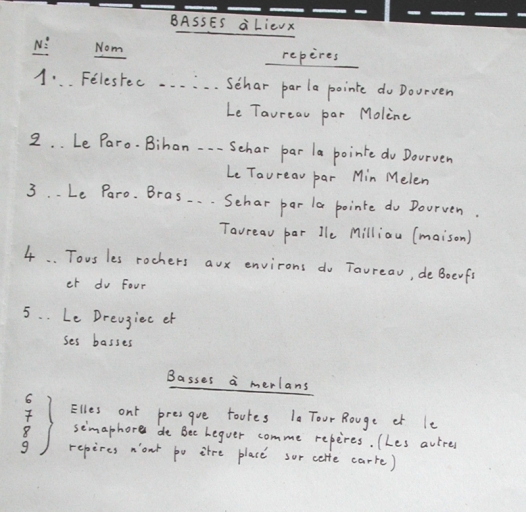 BASSES à Lieux
N° Nom repères
1... Félestec ...:... Séhar par la pointe du Dourven
Le Taureau par Molène
2.. Le Paro-Bihan --- Sehar par la pointe du Dourven
Le Taureau par Min Melen
3.. Le Paro-Bras--.. Sehar par la pointe du Dourven.
Taureau par Ile Milliau (maison)
4.. Tous les rochers aux environs du Taureau, de Boeufs
et du Four
5.. Le Dreuziec et
ses basses
Basses à merlans
6
7
8
9
Elles ont presque toutes la Tour Rouge et le
sémaphore de Bec Leguer comme repères. (Les autres
repères n'ont pu être placé sur cette carte)